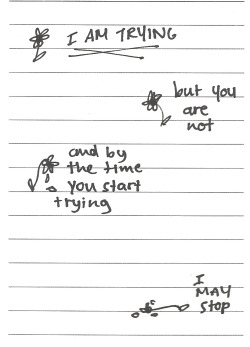 I AM TRYING
but you
are
not
and by
the time
you start
trying
I
MAY
Stop